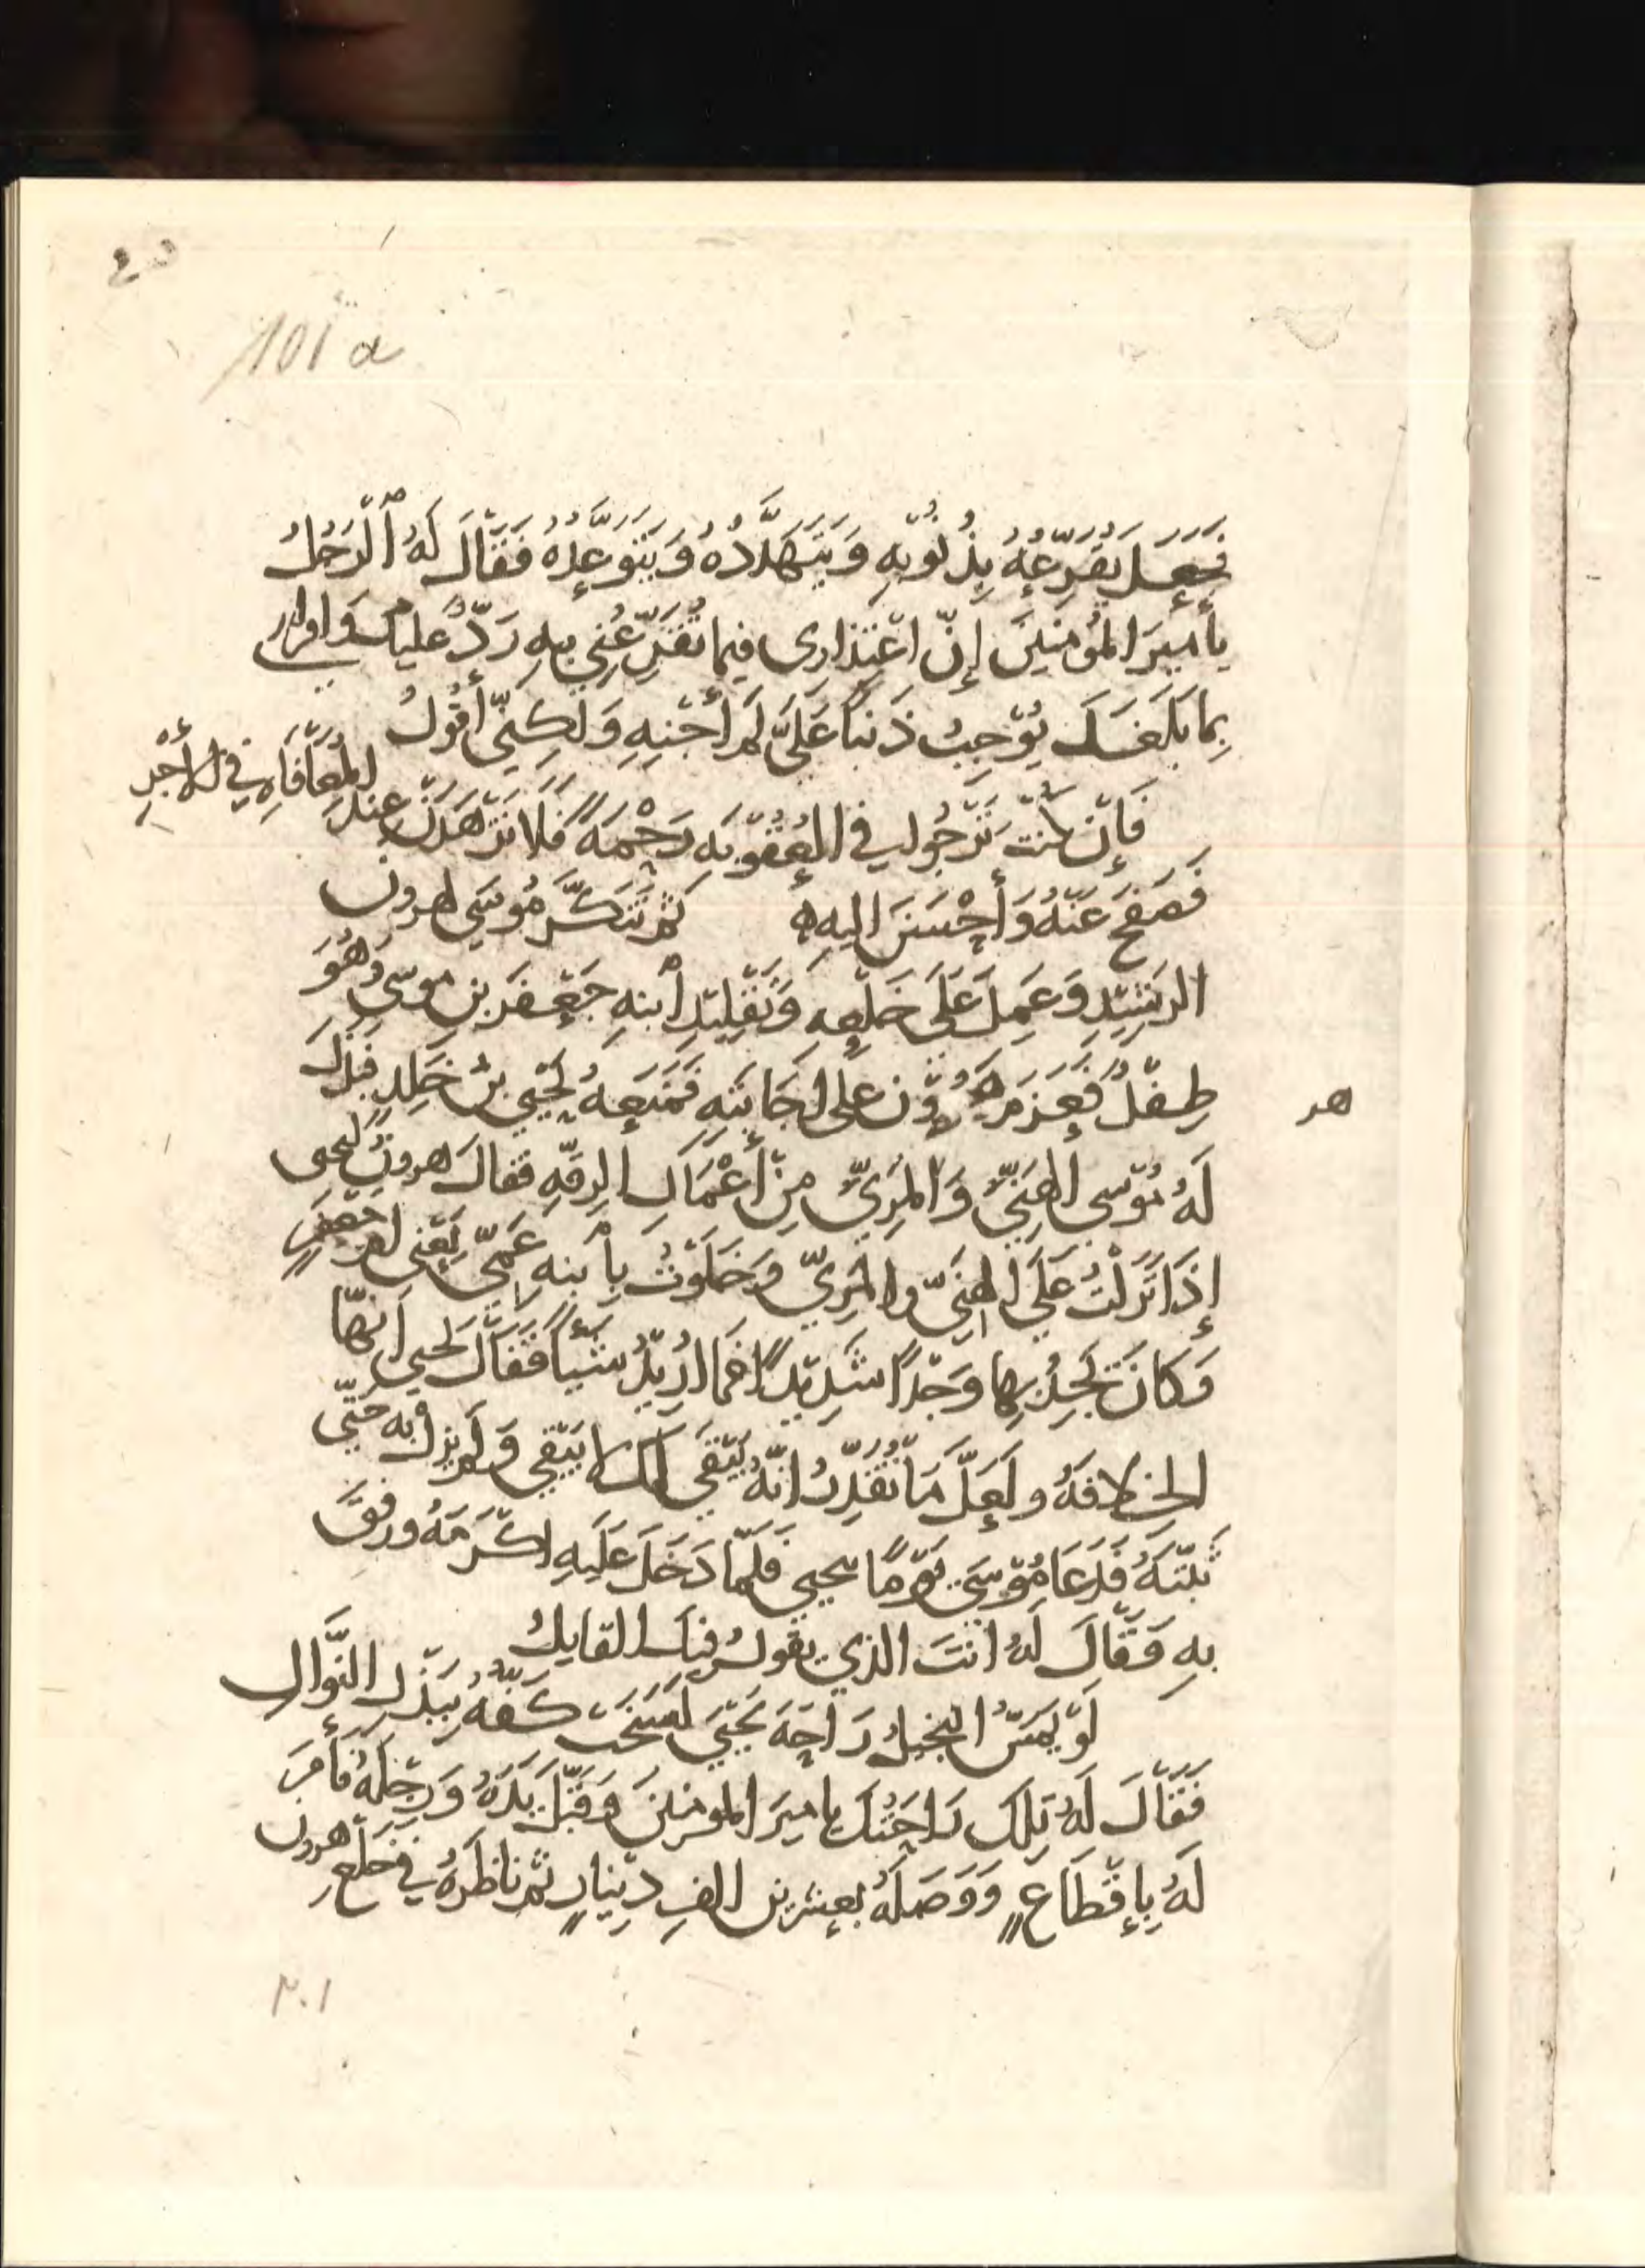 101 a
فَجَعَلَ يُقَرِّعُهُ بِذُنُوبِهِ وَيَتَهَدَّدُهُ وَيَتَوَعَّدُهُ فَقَالَ لَهُ ٱلْرَجُلُ
يا أَمِيرَ المُؤمنِينَ إنّ اعْتِذارى فيما تُقَرِّعُنِي بِهِ رَدٌّ عليكَ وَاقرارى
بِمَا بَلَغَكَ يُوْجِبُ ذَنبًا عَلَيَّ لَم أَجْنِهِ وَلَكِنّي أَقُولُ
فَإِنْ كُنْتَ تَرْجُوا فى العُقُوْبَهِ رَحْمَةً فَلا تَزْهَدَنْ عِندَ المُعَافَاهِ فى الأَجْرِ
فَصَفَحَ عَنْهُ وَأَحْسَنَ اليهِ ۞ ثم تَنَكَّرَ مُوسَي لهرون
الرشِيْدِ وَعَمِلَ عَلَى خَلْعِهِ وَتَقْلِيْدِ ٱبنهِ جَعْفَر بن موسى وَهُوَ
طِفْلٌ فَعَزَمَ هَرُوْن على اجَابَتِهِ فَمَنَعَهُ يَحْيَي بنُ خَلِدٍ فَبَذَلَ
هر
لَهُ مُوْسي الهَنِيَّ وَالمَرِيَّ مِنْ أَعْمَالِ الرقّهِ فقالَ هرونُ ليحيى
إِذَا نَزَلْتُ عَلَى الهَنِيّ والمَرِيّ وَخَلَوْتُ بِٱبنهِ عَمّي يَعْنى امّ جَعْفَرٍ
وَكَانَ يَجِدُ بِهَا وَجْدًا شَدِيْدًا فَمَا اُرِيْدُ شَيْئًا فَقَالَ يَحيى اَنهّا
الخلافَهُ ولَعَلَّ مَا تُقَدِّرُ انّهُ يَبْقَى لَكَ لا يَبْقي وَلَم يزل به حتّي
ثَبّتَهُ فَدَعَا مُوْسَى يَوْمًا بيحيى فَلَمّا دَخَلَ عَلَيهِ اكْرَمَهُ ورفقَ
بهِ وَقَالَ لَهُ انتَ الذي يقولُ فيكَ القايلُ
لَوْ يَمَسّ البَخِيلُ رَاحَةَ يَحْيَي لَسَخَتْ كَفّهُ بِبَذْلِ النّوالِ
فَقَالَ لَهُ تِلكَ رَاحَتُكَ يا ميرَ المومنينَ وَقَبّلَ يَدَهُ وَرِجْلَهُ فَأَمَرَ
لَهُ بِإقْطَاعٍ وَوَصَلَهُ بعِشرين الفِ دِيْنارٍ ثم ناظَرَهُ في خَلْعِ هرون
٢٠١